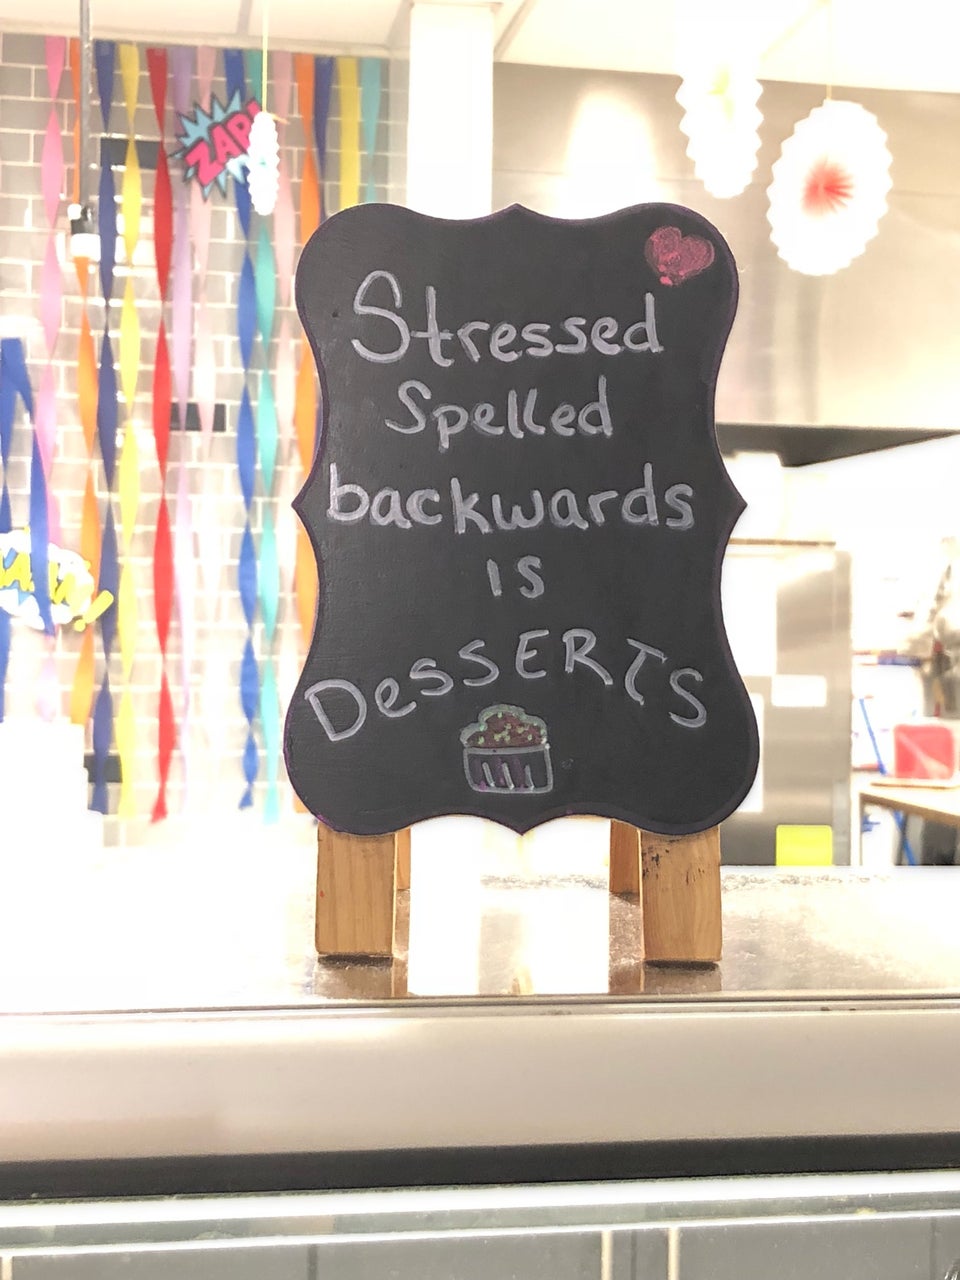 ZAP!
Stressed
Spelled
backwards
is
DeSSERTS